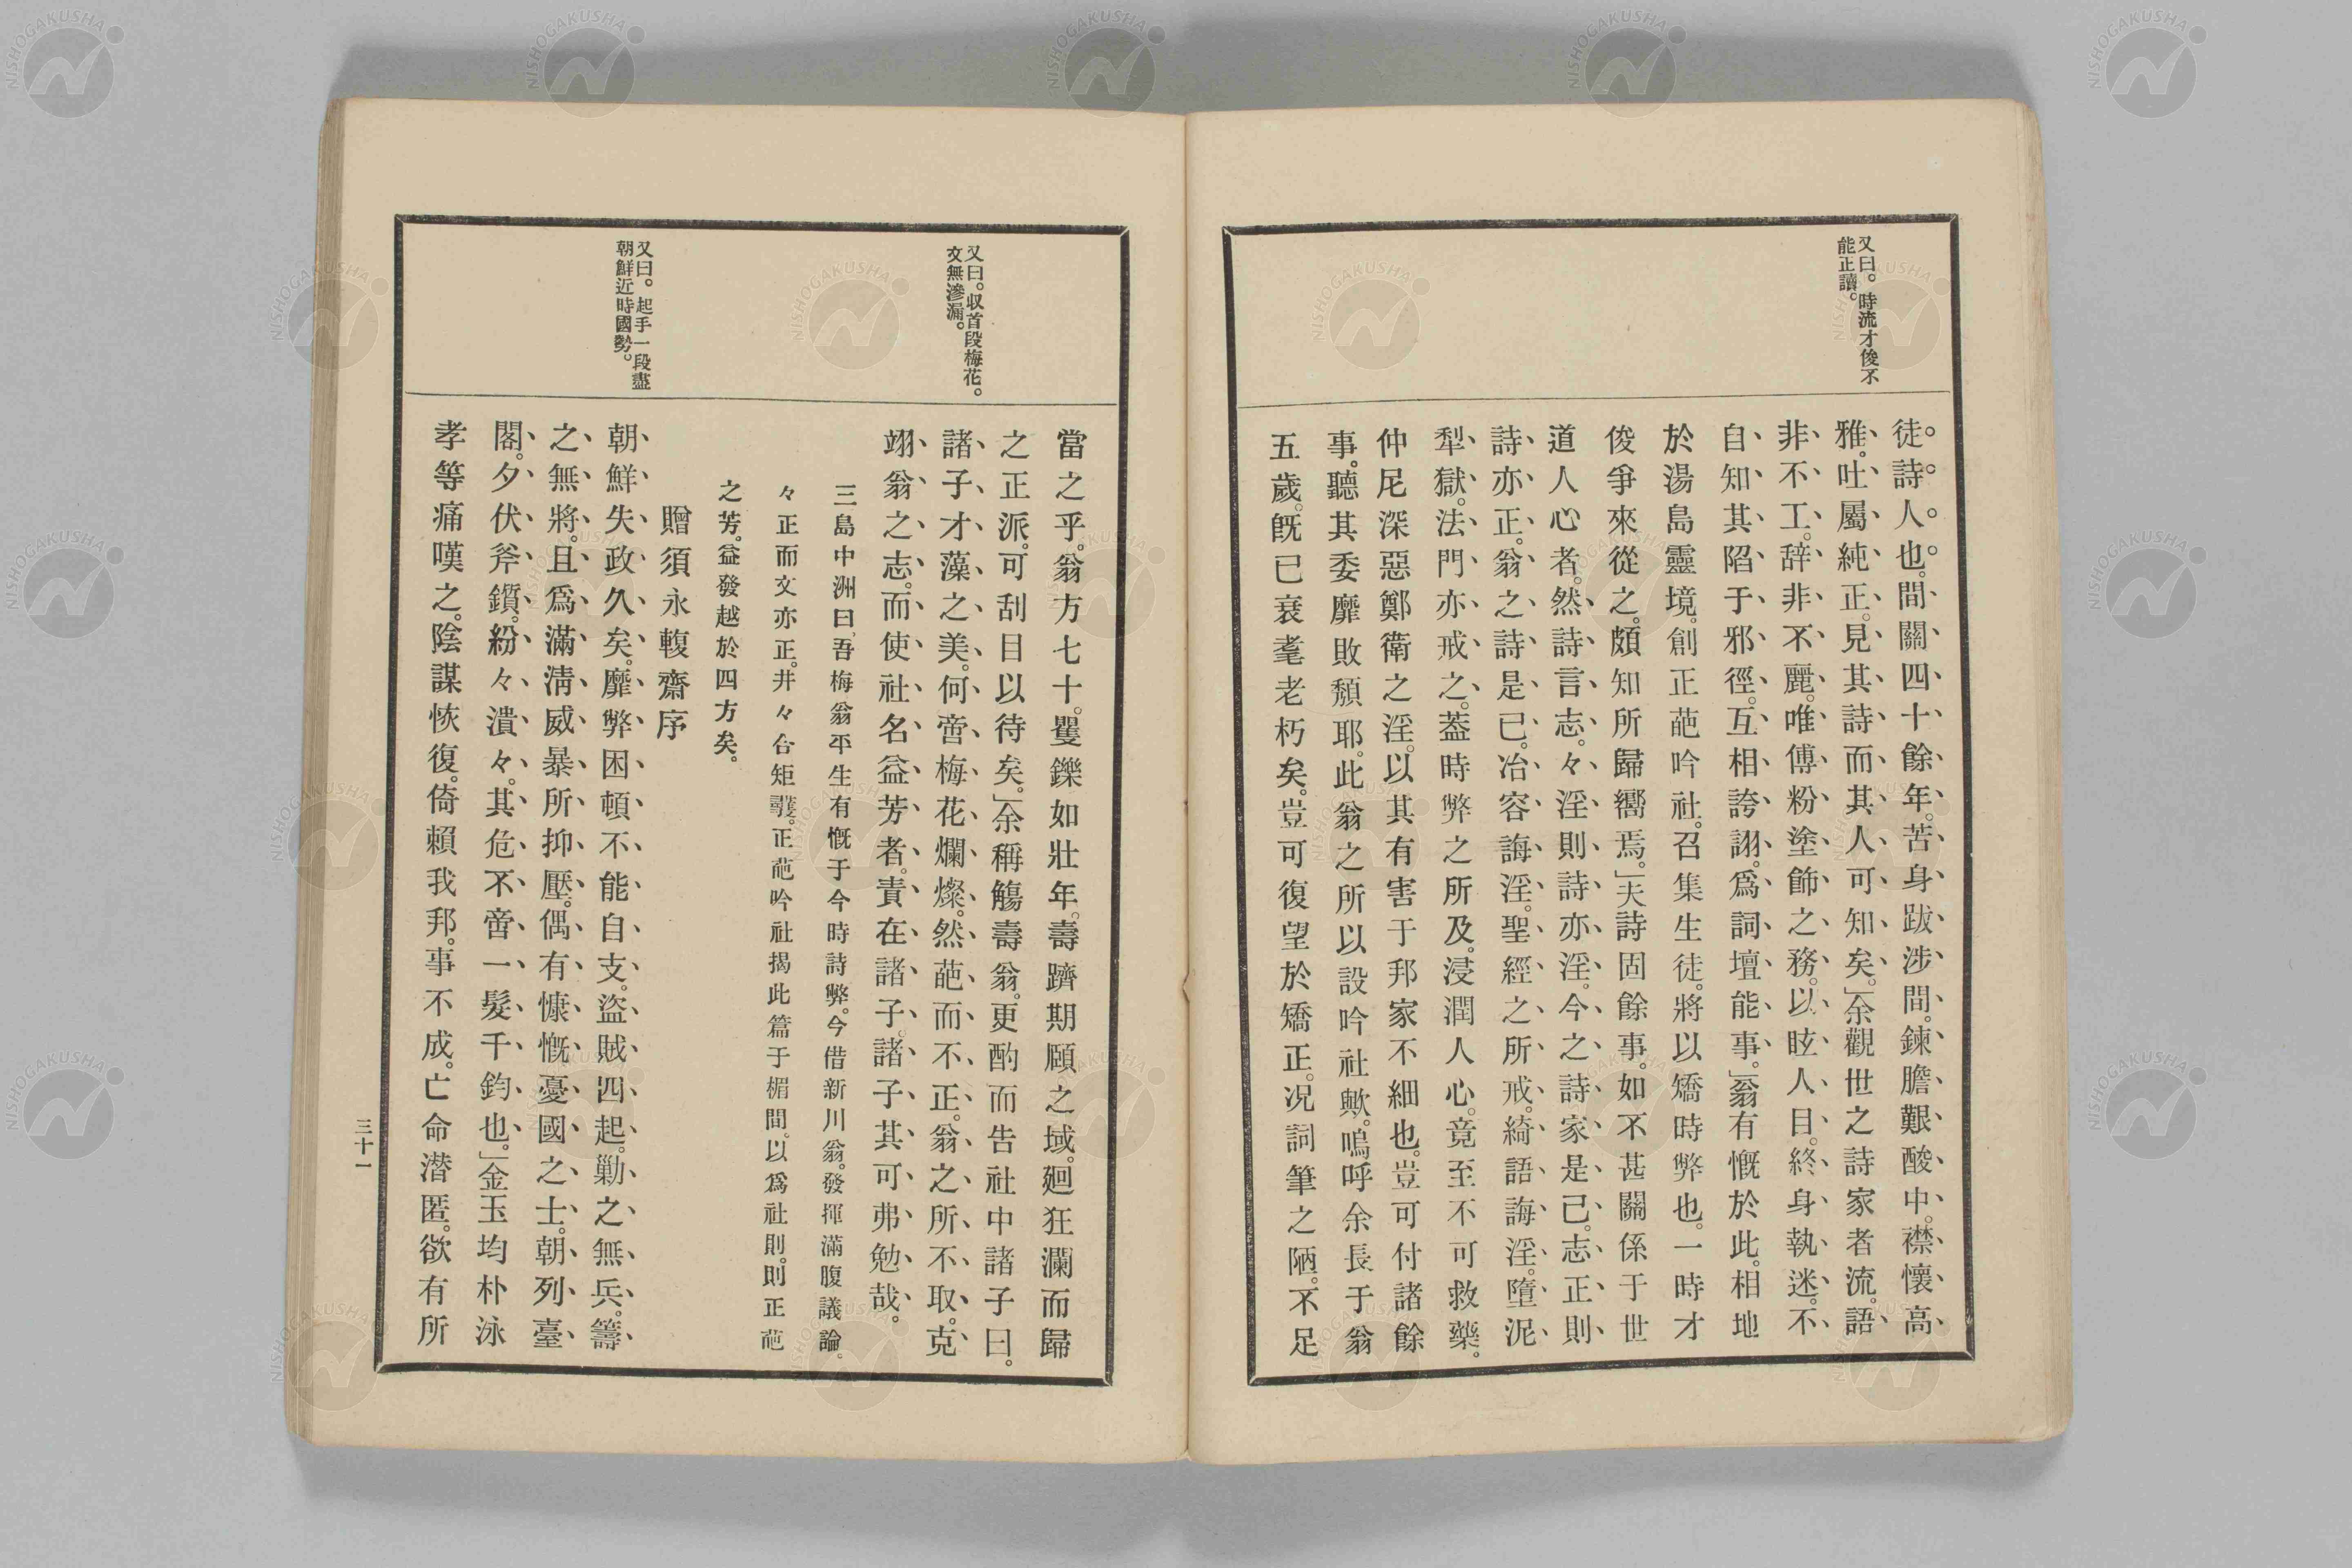 又曰。時流才俊不
能正讀。
徒。詩。人。也。間關四十餘年。苦身跋涉間。鍊膽艱酸中。襟懷高
雅。吐屬純正。見其詩而其人可知矣。」余觀世之詩家者流。語
非不工。辞非不麗。唯傅粉塗飾之務。以眩人目。終身執迷。不
自知其陷于邪徑。互相誇詡。爲詞壇能事。」翁有慨於此。相地
於湯島靈境。創正葩吟社。召集生徒。將以矯時弊也。一時才
俊爭來從之。頗知所歸嚮焉。」夫詩固餘事。如不甚關係于世
道人心者。然詩言志。々淫則詩亦淫。今之詩家是已。志正則
詩亦正。翁之詩是已。冶容誨淫。聖經之所戒。綺語誨淫。墮泥
犁獄。法門亦戒之。葢時弊之所及。浸潤人心。竟至不可救藥。
仲尼深惡鄭衛之淫。以其有害于邦家不細也。豈可付諸餘
事。聽其委靡敗頽耶。此翁之所以設吟社歟。嗚呼余長于翁
五歲。既已衰耄老朽矣。豈可復望於矯正。况詞筆之陋。不足
又曰。収首段梅花。
文無滲漏。
又曰。起手一段盡
朝鮮近時國勢。
當之乎。翁方七十。矍鑠如壯年。壽躋期頤之域。廻狂瀾而歸
之正派。可刮目以待矣。」余稱觴壽翁。更酌而告社中諸子曰。
諸子才藻之美。何啻梅花爛燦。然葩而不正。翁之所不取。克
翊翁之志。而使社名益芳者。責在諸子。諸子其可弗勉哉。
三島中洲曰、吾梅翁平生有慨于今時詩弊。今借新川翁。發揮滿腹議論。
々正而文亦正。井々合矩矱。正葩吟社揭此篇于楣間。以爲社則。則正葩
之芳。益發越於四方矣。
贈須永輹齋序
朝鮮失政久矣。靡弊困頓不能自支。盜賊四起。勦之無兵。籌
之無將。且爲滿淸威暴所抑壓。偶有慷慨憂國之士。朝列臺
閣。夕伏斧鑕。紛々潰々。其危不啻一髮千鈞也。」金玉均朴泳
孝等痛嘆之。陰謀恢復。倚賴我邦。事不成。亡命潜匿。欲有所
三十一